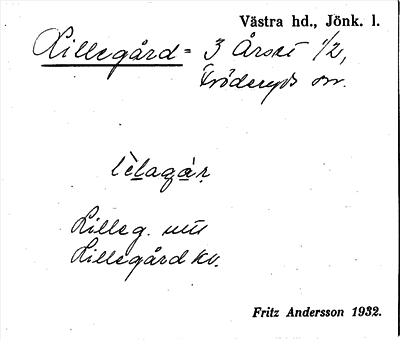 Västra hd., Jönk. l.
Lillegård = 3 Årset 1/2,
Fröderyds sn.
lìlagár
Lilleg.
Lillegård kv.
Fritz Andersson 1932.